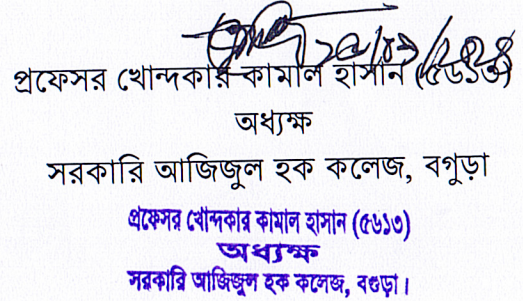 প্রফেসর খোন্দকার কামাল হাসান (৫৬১৩)
অধ্যক্ষ
সরকারি আজিজুল হক কলেজ, বগুড়া
প্রফেসর খোন্দকার কামাল হাসান (৫৬১৩)
অধ্যক্ষ
সরকারি আজিজুল হক কলেজ, বগুড়া।